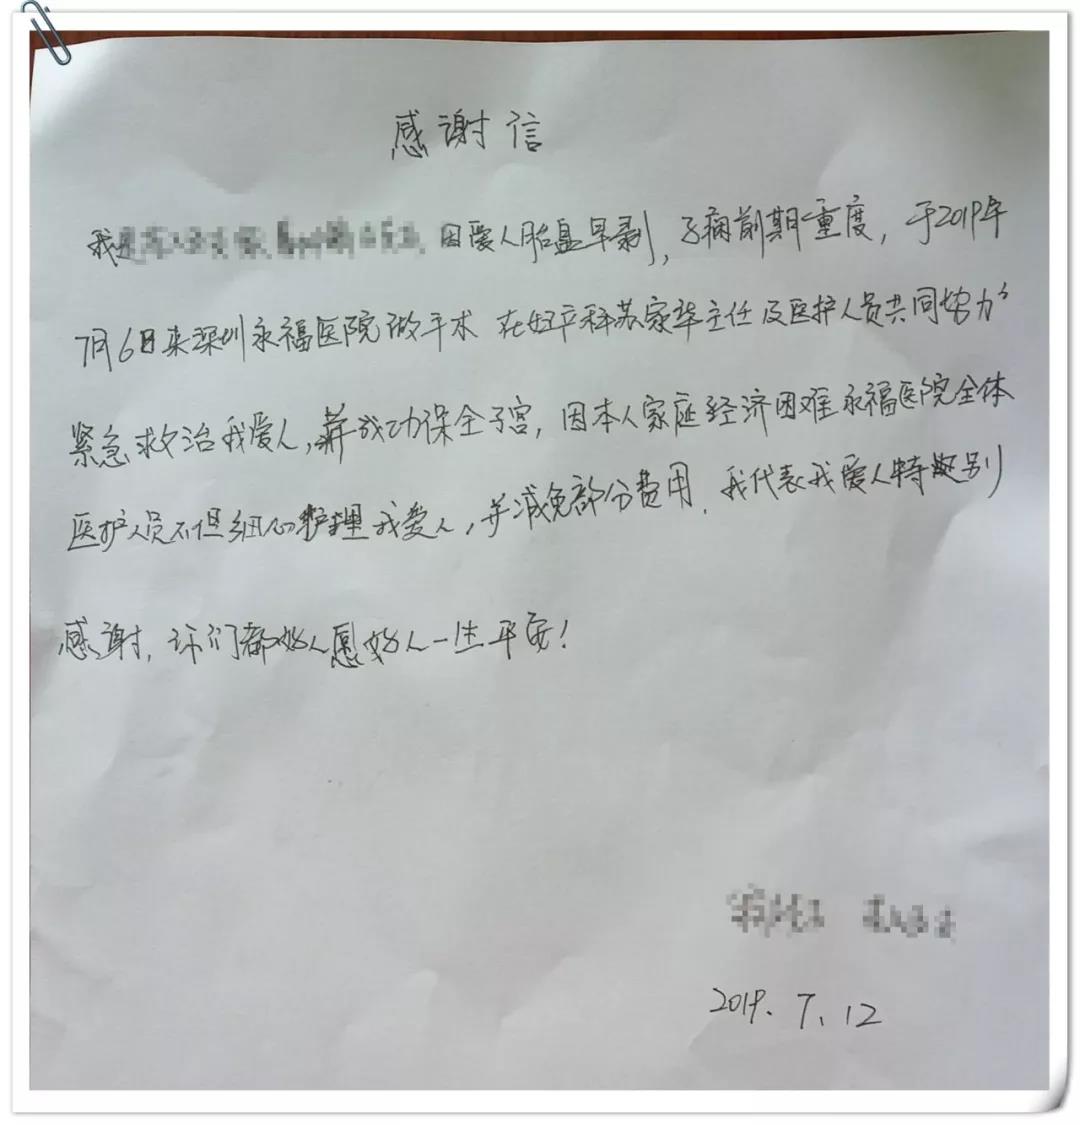 感谢信
我是 因爱人胎盘早剥，子痫前期重度，于2019年
7月6日来深圳永福医院做手术 在妇产科苏家华主任及医护人员共同努力
紧急救治我爱人，并成功保全子宫，因本人家庭经济困难永福医院全体
医护人员不但细心护理我爱人，并减免部分费用．我代表我爱人特别
感谢，你们都好人愿好人一生平安！
2019．7．12